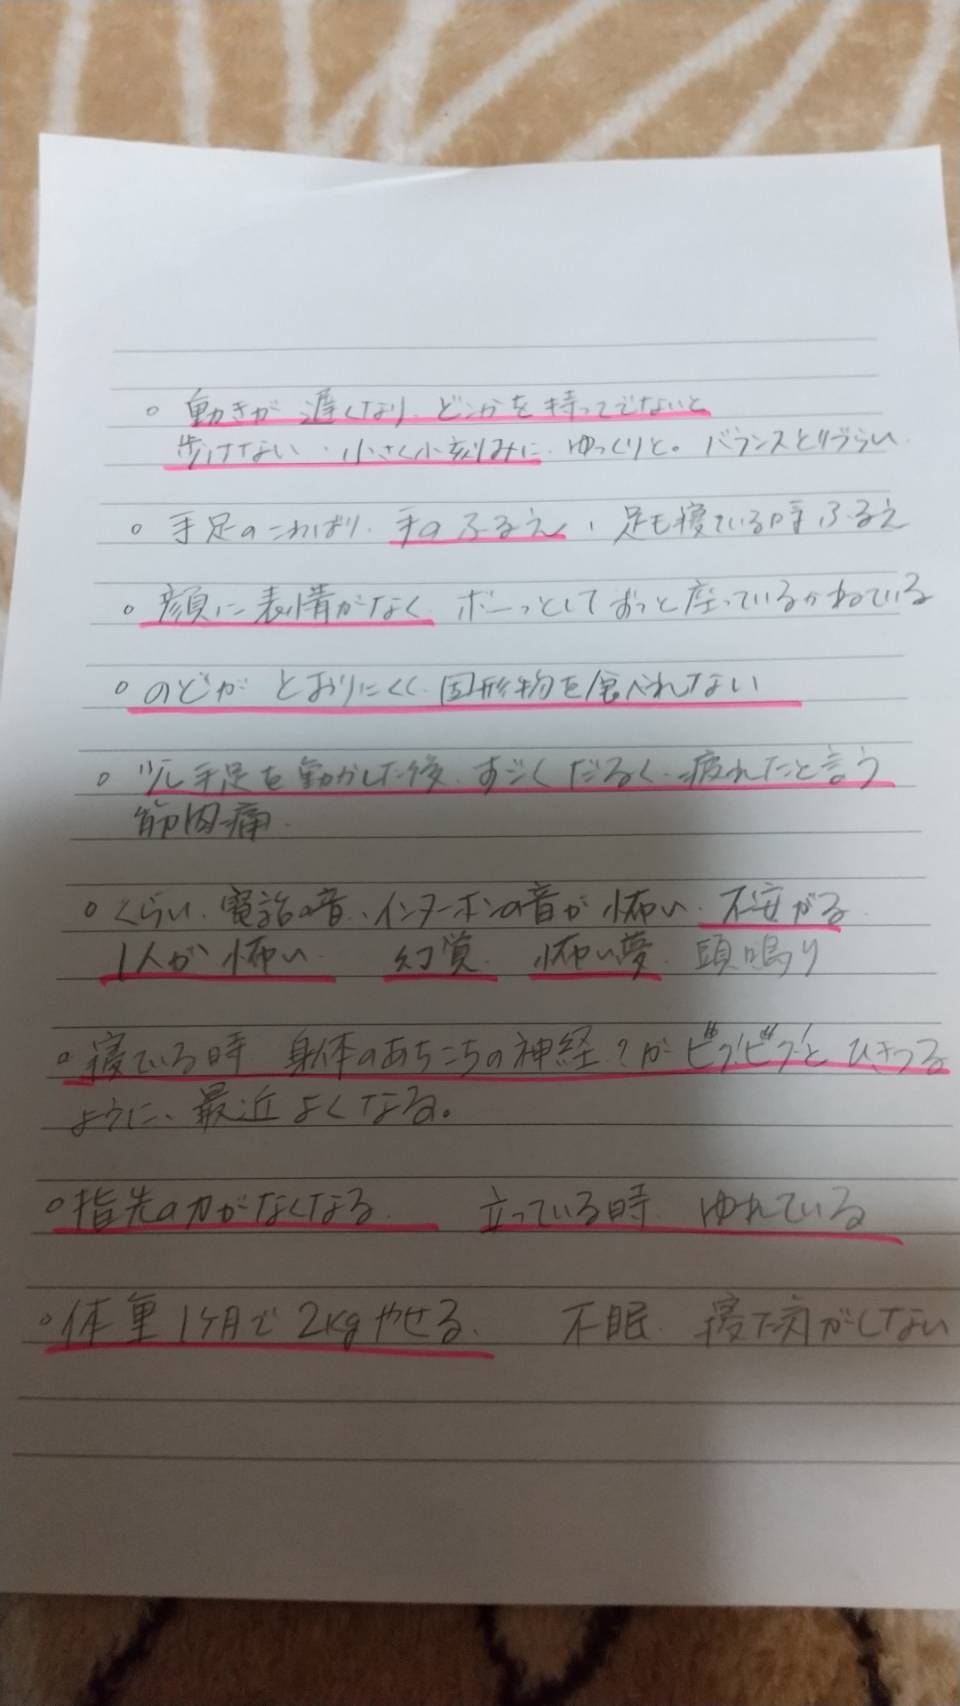 ○ 動きが遅くなり、どこかを持ってでないと
歩けない、小さく小刻みに、ゆっくりと。バランスとりづらい
○ 手足のこわばり、手のふるえ、足も寝ている時ふるえ
○ 顔に表情がなく、ボーっとしてずっと座っているかねている
○ のどが とおりにくく、固形物を食べれない
○ 少し手足を動かした後、すごくだるく、疲れたと言う
筋肉痛
○ くらい、電話の音、インターホンの音が怖い、不安がる
1人が怖い 幻覚 怖い夢 頭鳴り
○ 寝ている時 身体のあちこちの神経?が ビクビクと ひきつる
ように、最近よくなる。
○ 指先の力がなくなる 立っている時 ゆれている
○ 体重1ヶ月で2kgやせる、 不眠 寝た気がしない